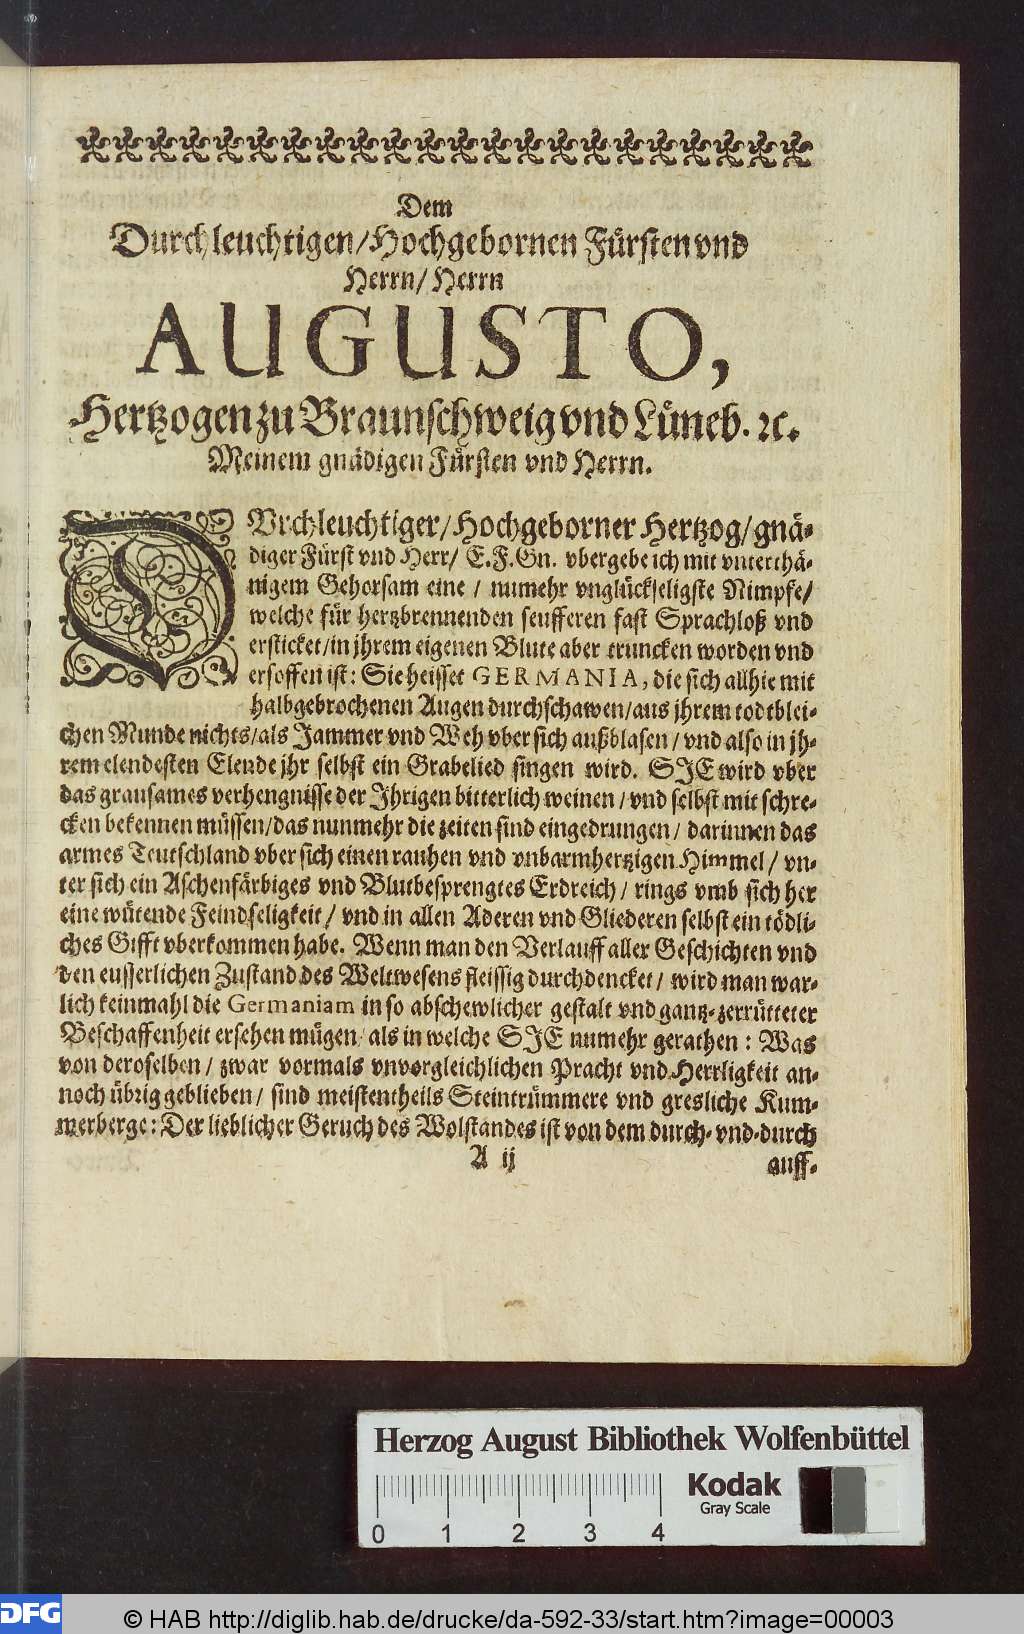 Dem
Durchleuchtigen/Hochgebornen Fürsten vnd
Herrn/ Herrn
AUGUSTO,
Hertzogen zu Braunschweig vnd Lüneb. ꝛc.
Meinem gnädigen Fürsten vnd Herrn.
DVrchleuchtiger/Hochgeborner Hertzog/gnä-
diger Fürst vnd Herr/ E.F.Gn. vbergebe ich mit vnterthä-
nigem Gehorsam eine / numehr vnglückseligste Nimpfe/
welche für hertzbrennenden seufferen fast Sprachloß vnd
ersticket/in jhrem eigenen Blute aber truncken worden vnd
ersoffen ist: Sie heisset GERMANIA, die sich allhie mit
halbgebrochenen Augen durchschawen/aus jhrem todtblei-
chen Munde nichts/als Jammer vnd Weh vber sich außblasen / vnd also in jh-
rem elendesten Elende jhr selbst ein Grabelied singen wird. SJE wird vber
das grausames verhengnisse der Jhrigen bitterlich weinen / vnd selbst mit schre-
cken bekennen müssen/das nunmehr die zeiten sind eingedrungen / darinnen das
armes Teutschland vber sich einen rauhen vnd vnbarmhertzigen Himmel / vn-
ter sich ein Aschenfärbiges vnd Blutbesprengtes Erdreich / rings vmb sich her
eine wütende Feindseligkeit / vnd in allen Aderen vnd Gliederen selbst ein tödli-
ches Gifft vberkommen habe. Wenn man den Verlauff aller Geschichten vnd
den eusserlichen Zustand des Weltwesens fleissig durchdencket / wird man war-
lich keinmahl die Germaniam in so abschewlicher gestalt vnd gantz-zerrütteter
Beschaffenheit ersehen mügen/ als in welche SJE numehr gerathen : Was
von deroselben / zwar vormals vnvergleichlichen Pracht vnd Herrligkeit an-
noch übrig geblieben / sind meistentheils Steintrümmere vnd gresliche Kum-
merberge: Der lieblicher Geruch des Wolstandes ist von dem durch- vnd-durch
A ij
auff-
Herzog August Bibliothek Wolfenbüttel
Kodak
Gray Scale
0 1 2 3 4
DFG
© HAB http://diglib.hab.de/drucke/da-592-33/start.htm?image=00003